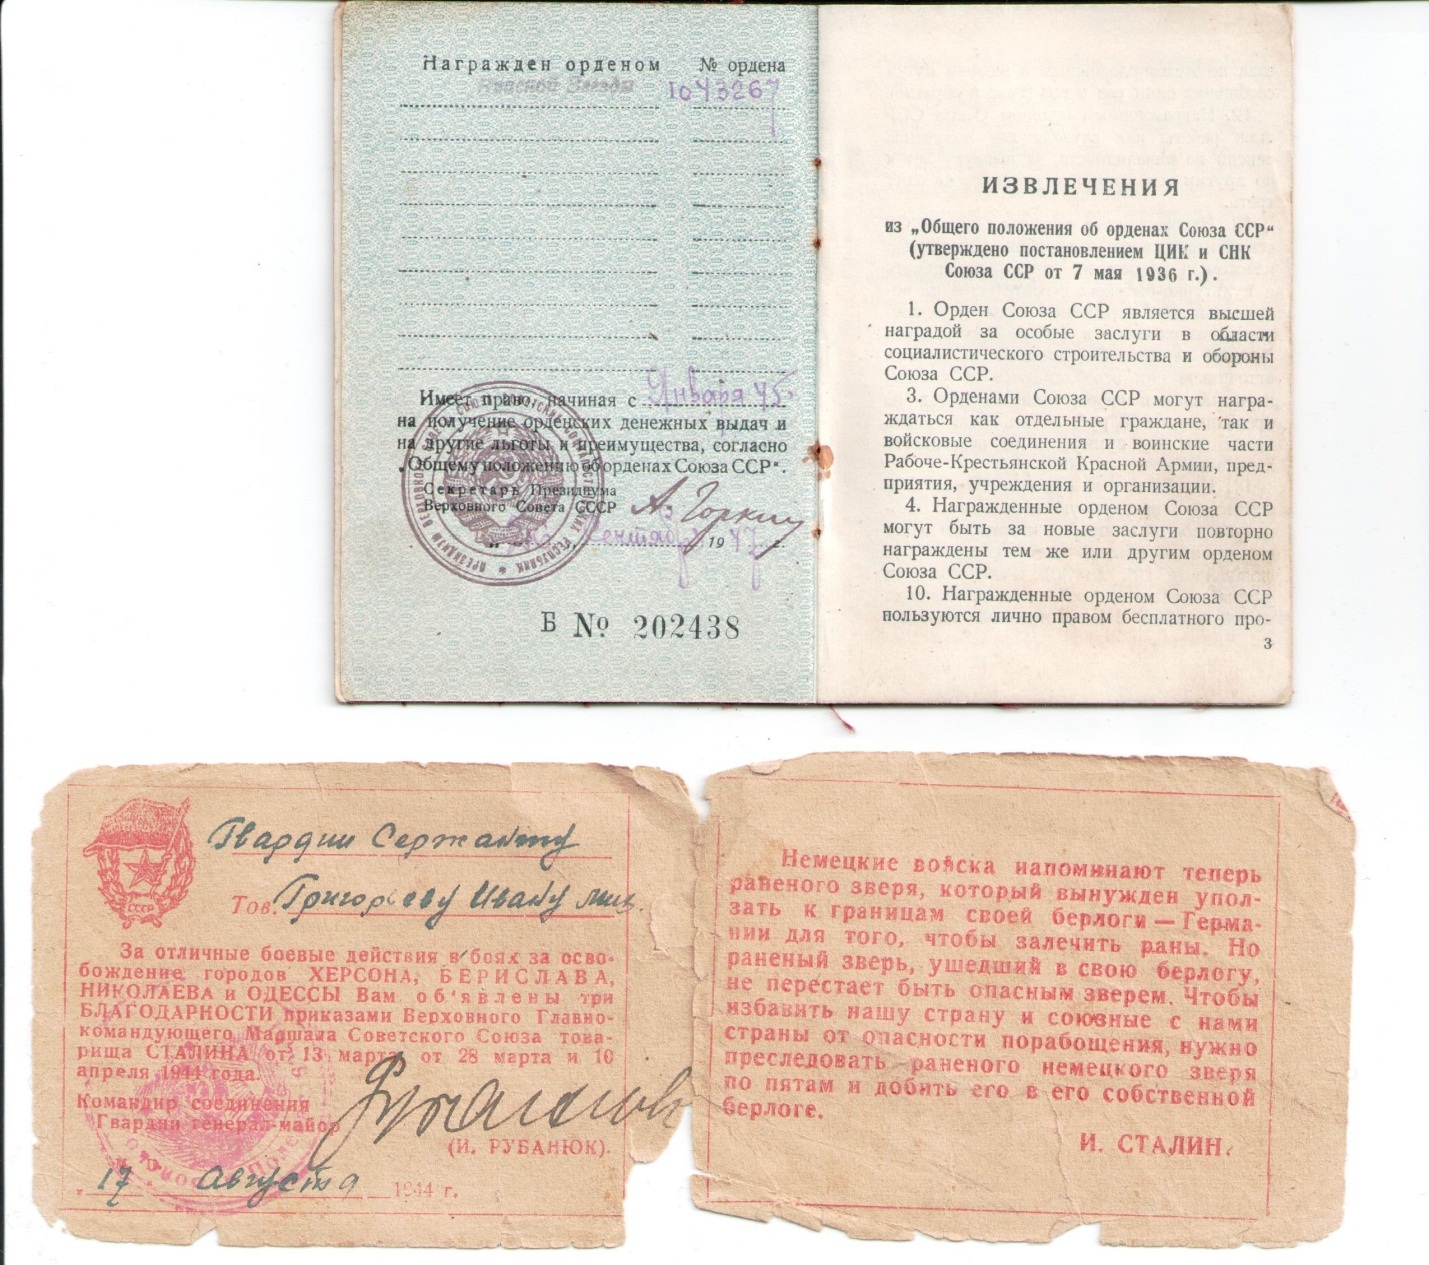 Награжден орденом № ордена
Красной Звезды 1043267
Имеет право, начиная с Января 45
на получение орденских денежных выдач и
на другие льготы и преимущества, согласно
„Общему положению об орденах Союза ССР“.
Секретарь Президиума
Верховного Совета СССР А. Горкин
Сентября 1947 г.
Б № 202438
ИЗВЛЕЧЕНИЯ
из „Общего положения об орденах Союза ССР“
(утверждено постановлением ЦИК и СНК
Союза ССР от 7 мая 1936 г.).
1. Орден Союза ССР является высшей
наградой за особые заслуги в области
социалистического строительства и обороны
Союза ССР.
3. Орденами Союза ССР могут награ-
ждаться как отдельные граждане, так и
войсковые соединения и воинские части
Рабоче-Крестьянской Красной Армии, пред-
приятия, учреждения и организации.
4. Награжденные орденом Союза ССР
могут быть за новые заслуги повторно
награждены тем же или другим орденом
Союза ССР.
10. Награжденные орденом Союза ССР
пользуются лично правом бесплатного про-
3
СССР
Гвардии Сержанту
Тов. Григорьеву Ивану Мих.
За отличные боевые действия в боях за осво-
бождение городов ХЕРСОНА, БЕРИСЛАВА,
НИКОЛАЕВА и ОДЕССЫ Вам об'явлены три
БЛАГОДАРНОСТИ приказами Верховного Главно-
командующего Маршала Советского Союза това-
рища СТАЛИНА от 13 марта, от 28 марта и 10
апреля 1944 года.
Командир соединения
Гвардии генерал-майор
(И. РУБАНЮК).
„17“ Августа 1944 г.
Немецкие войска напоминают теперь
раненого зверя, который вынужден упол-
зать к границам своей берлоги — Герма-
нии для того, чтобы залечить раны. Но
раненый зверь, ушедший в свою берлогу,
не перестает быть опасным зверем. Чтобы
избавить нашу страну и союзные с нами
страны от опасности порабощения, нужно
преследовать раненого немецкого зверя
по пятам и добить его в его собственной
берлоге.
И. СТАЛИН.